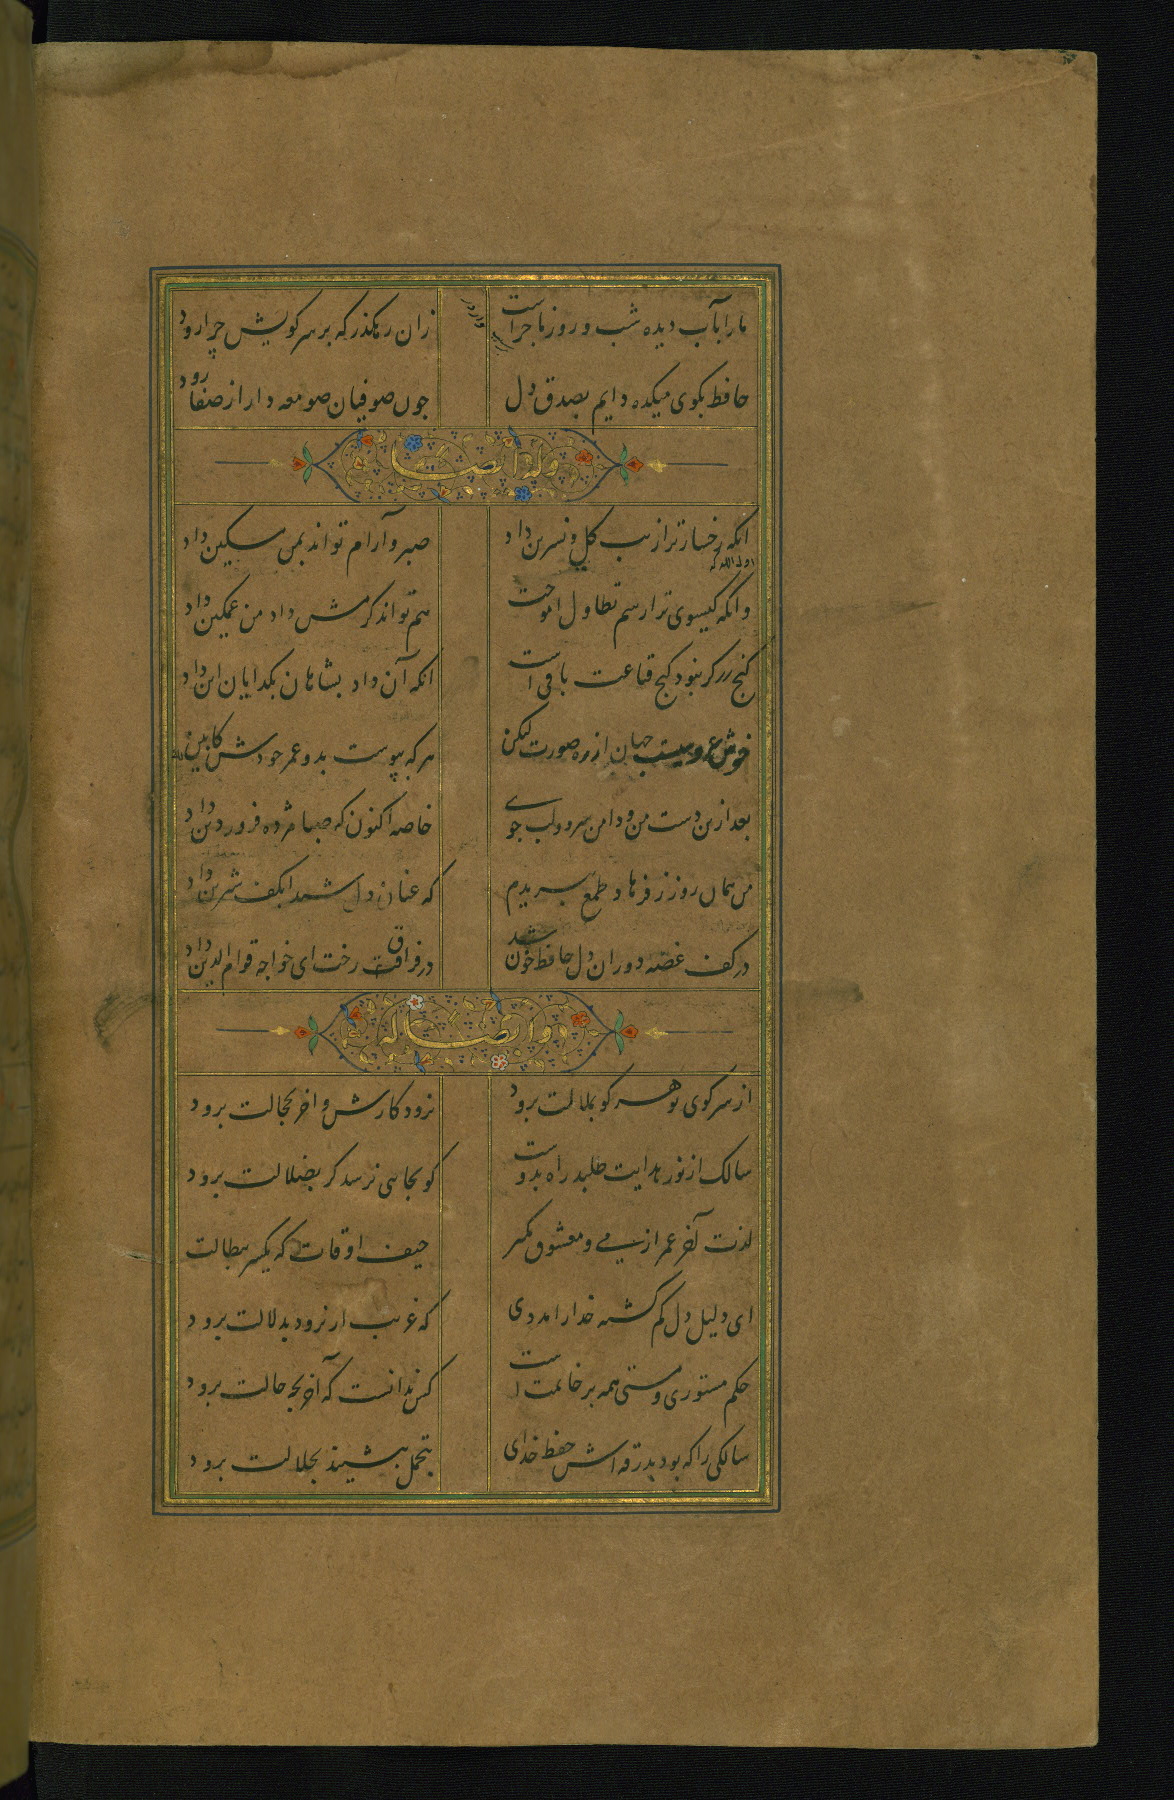 مارا بآب دیده شب و روز ماجراست زان رهگذر که بر سر کویش چرا رود
حافظ بکوی میکده دایم بصدق دل چون صوفیان صومعه دار از صفا رود
وله ایضا
انکه رخسار ترا زیب گل و نسرین داد صبر و آرام تواند بمن مسکین داد
وانکه گیسوی ترا رسم تطاول اموخت هم تواند کرمش داد من غمگین داد
گنج زر گر نبود گنج قناعت باقی است انکه آن داد بشاهان بگدایان این داد
خوش عروسیست جهان از ره صورت لیکن هر که پیوست بدو عمر خودش کابین داد
بعد ازین دست من و دامن سرو و لب جوی خاصه اکنون که صبا مژده فروردین داد
من همان روز ز فرهاد طمع ببریدم که عنان دل شیدا بکف شیرین داد
در کف غصه دوران دل حافظ خون شد در فراق رخت ای خواجه قوام الدین داد
وله ایضا
از سر کوی تو هر کو بملالت برود نرود کارش و اخر بخجالت برود
سالک از نور هدایت طلبد راه بدوست که بجایی نرسد گر بضلالت برود
لذت آخر عمر از می و معشوق بگیر حیف اوقات که یکسر ببطالت
ای دلیل دل گم گشته خدا را مددی که غریب ار نرود بدلالت برود
حکم مستوری و مستی همه بر خاتمت است کس ندانست که آخر بچه حالت برود
سالکی را که بود بدرقه اش حفظ خدای بتجمل بنشیند بجلالت برود